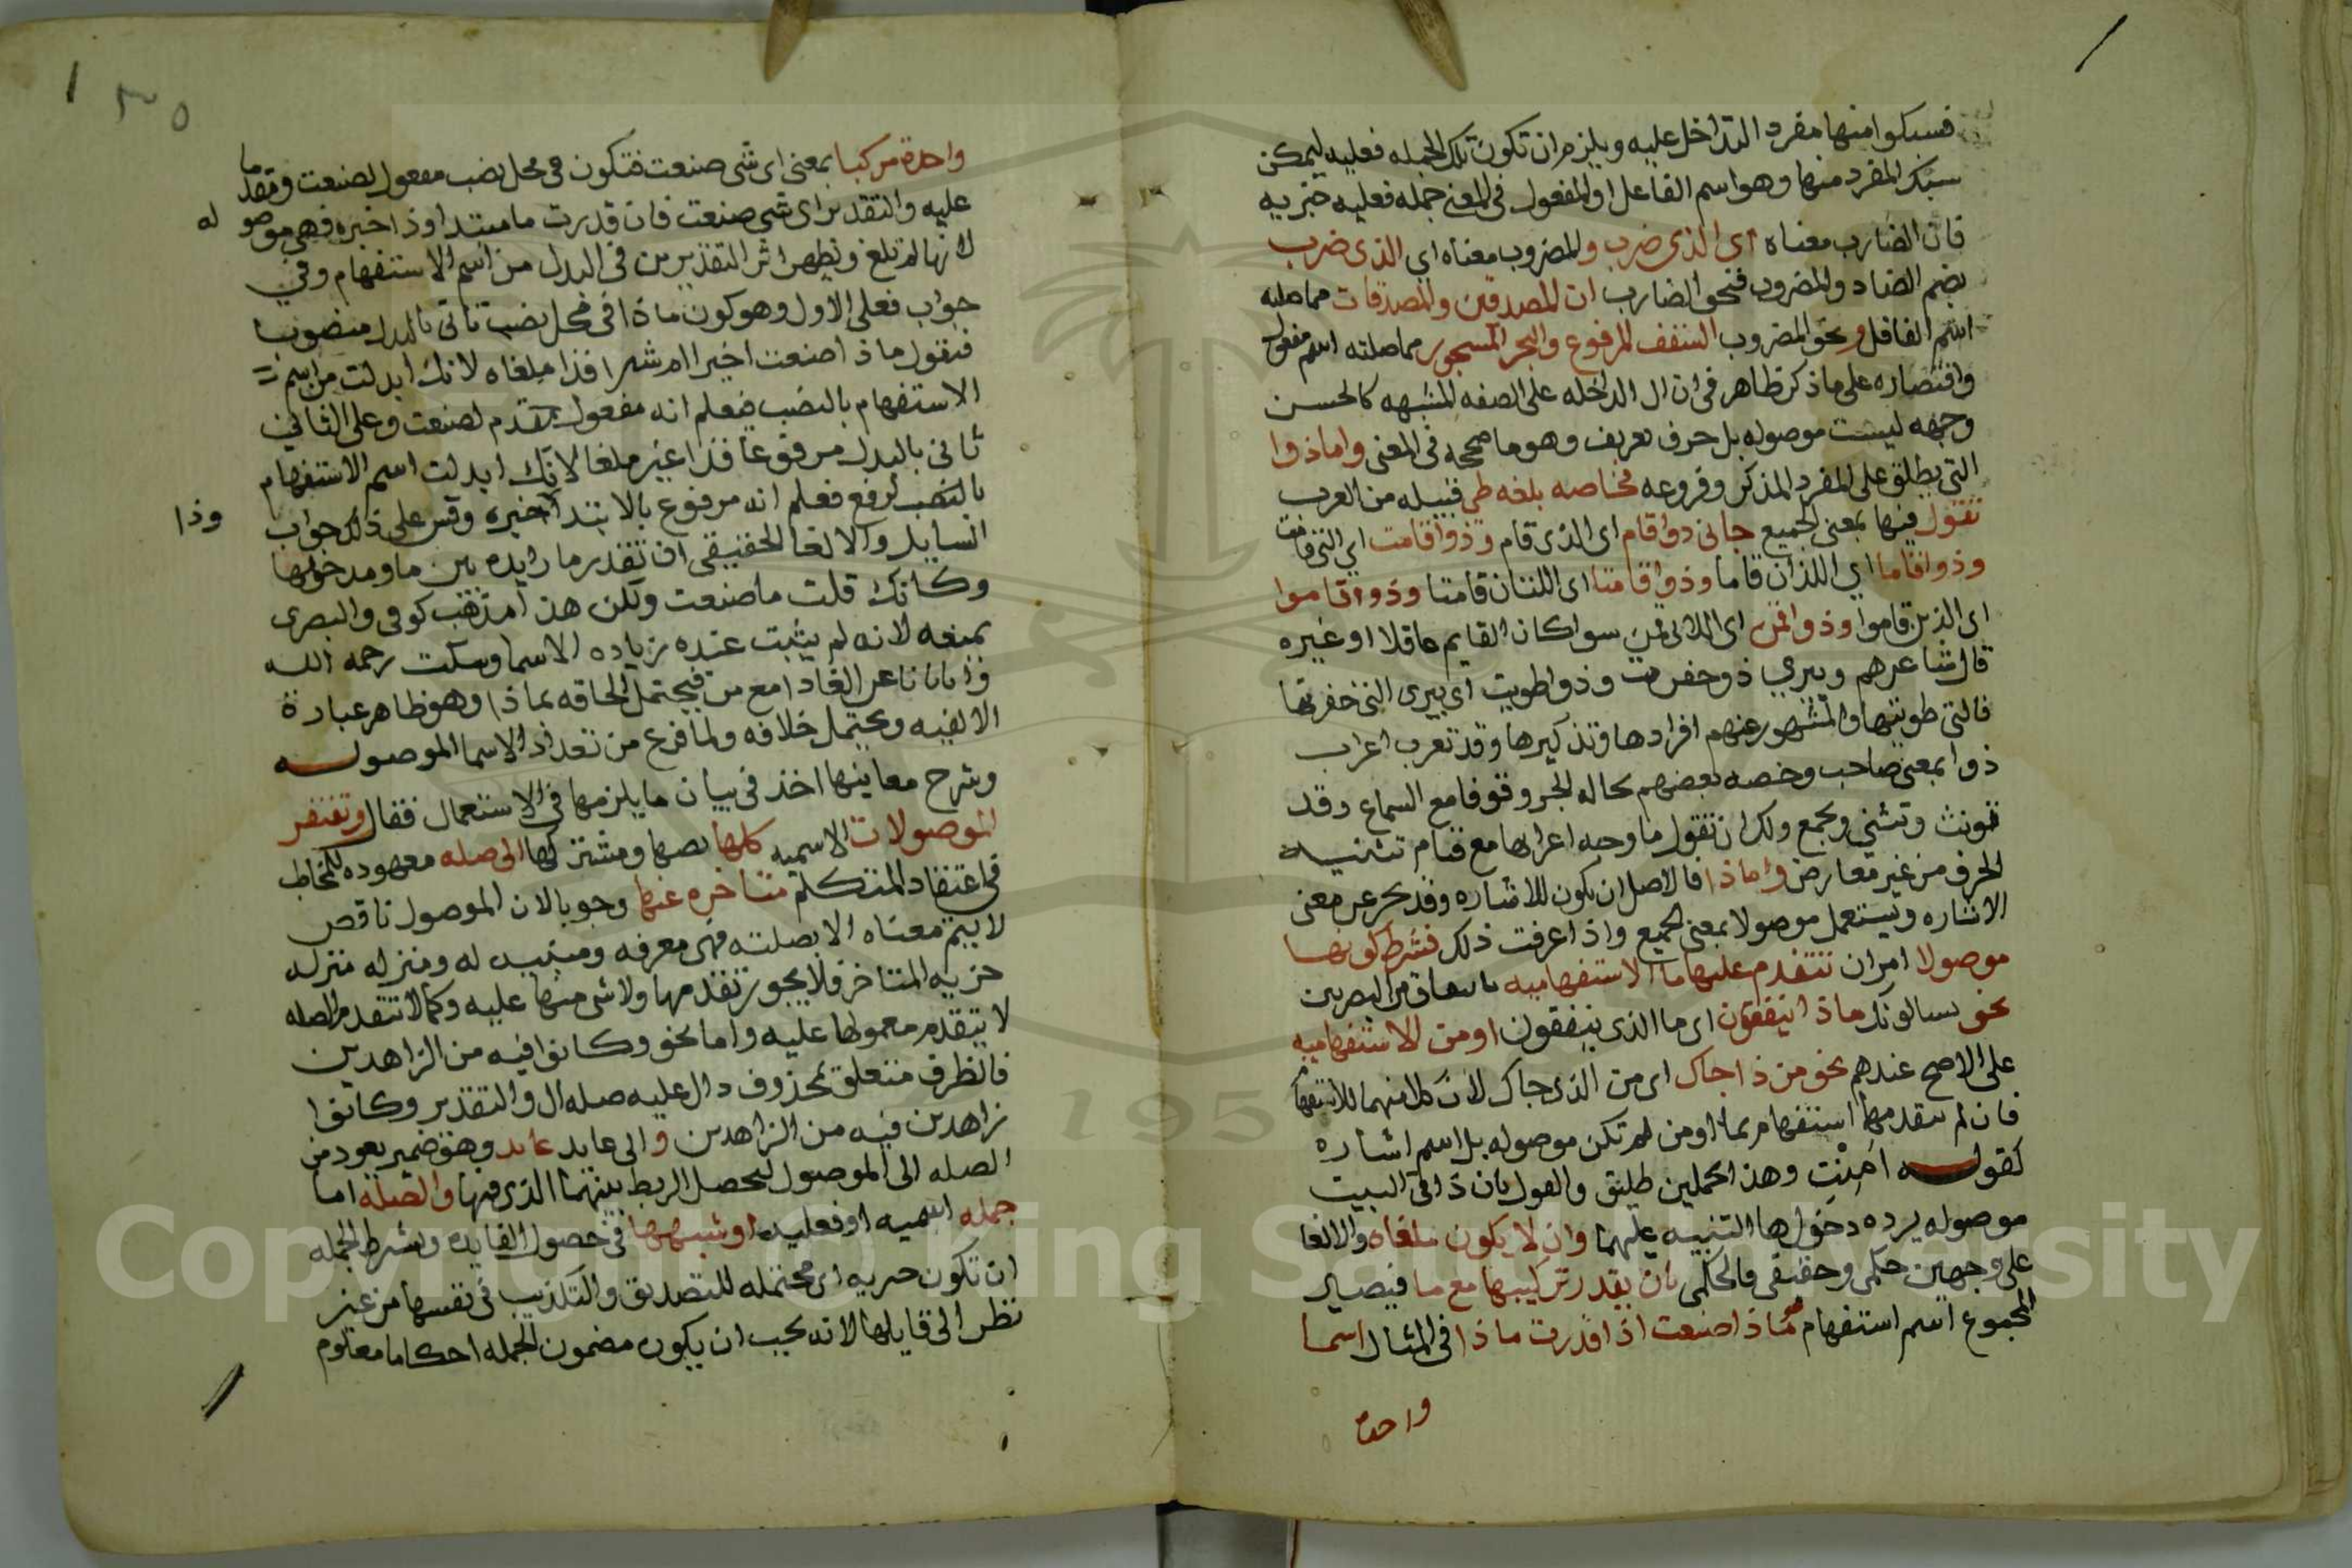 فسبكوا منها مفردا لتداخل عليه ويلزم ان تكون تلك الجمله فعليه ليمكن
سبك المفرد منها وهو اسم الفاعل او المفعول في المعنى جمله فعليه خبريه
فان الضارب معناه اي الذي ضرب والمضروب معناه اي الذي ضرب
بضم الضاد والمضروب فنحو الضارب ان المصدقين والمصدقات مما صلته
اسم الفاعل ونحو المضروب السقف المرفوع والبحر المسجور مما صلته اسم مفعول
واقتصاره على ماذكر ظاهر في ان ال الداخله على الصفه المشبهه كالحسن
وجهه ليست موصوله بل حرف تعريف وهو ما صححه في المعنى واما ذوا
التي يطلق على المفرد المذكر وفروعه فخاصه بلغه طي قبيله من العرب
تقول فيها بمعنى الجميع جاني ذوا قام اي الذي قام وذوا قامت اي التي قامت
وذوا قاما اي اللذان قاما وذوا قامتا اي اللتان قامتا وذوا قاموا
اي الذين قاموا وذوا قمن اي اللاتي قمن سوا كان القايم عاقلا او غيره
قال شاعرهم وبيري ذو حفرت وذوا طويت اي بيري التي حفرتها
فالتي طويتها والمشهور عنهم افرادها وتذكيرها وقد تعرب اعراب
ذوا بمعنى صاحب وخصه بعضهم بحاله الجر وقوفا مع السماع وقد
تونث وتثنى وتجمع ولك ان تقول ما وجه اعرابها مع قيام تشبيه
الحرف من غير معارض واما ذا فالاصل ان يكون للاشاره وقد يجرعن معنى
الاشاره ويستعمل موصولا بمعنى الجميع واذا عرفت ذلك فشرط كونها
موصولا امران تتقدم عليها ما الاستفهاميه باتفاق من البصريين
نحو يسالونك ماذا ينفقون اي ما الذي ينفقون او من الاستفهاميه
على الاصح عندهم نحو من ذا جاك اي من الذي جاك لان كلا منهما للاستفهام
فان لم يتقدمها استفهام بما او من لم تكن موصوله بل اسم اشاره
كقوله امنت وهذا تحملين طليق والقول بان ذا في البيت
موصوله يرده دخول ها التنبيه عليها وان لا يكون ملغاه والالغا
على وجهين حكمي وحقيقي فالحكمي بان يقدر تركيبها مع ما فيصير
المجموع اسم استفهام نحو ماذا صنعت اذا قدرت ماذا في المثال اسما
واحدة
واحدة مركبا بمعنى اي شي صنعت فتكون في محل نصب مفعول لصنعت ومقدما
عليه والتقدير اي شي صنعت فان قدرت ما مبتدا وذا خبره فهي موصوله
لانها لم تلغ ويظهر اثر التقديرين في البدل من اسم الاستفهام وفي
جواب فعلى الاول وهو كون ماذا في محل نصب تاتي بالبدل منصوبا
فتقول ماذا صنعت اخيرا ام شرا فذا ملغاه لانك ابدلت من اسم
الاستفهام بالنصب فيعلم انه مفعول مقدم لصنعت وعلى الثاني
تاتي بالبدل مرفوعا فذا غير ملغا لانك ابدلت اسم الاستفهام
بالنصب لرفع فعلم انه مرفوع بالابتدا خبره وقس على ذلك جواب
وذا
السايل والالغا الحقيقي ان تقدر ما زايده بين ما ومدخولها
وكانك قلت ما صنعت ولكن هذا مذهب كوفي والبصري
يمنعه لانه لم يثبت عنده زياده الاسما وسكت رحمه الله
واياناعن الغاذا مع من فيحتمل الحاقه بماذا وهو ظاهر عبارة
الالفيه ويحتمل خلافه ولما فرغ من تعداد الاسما الموصوله
وشرح معاينها اخذ في بيان ما يلزمها في الاستعمال فقال وتفتقر
الموصولات الاسميه كلها نصها ومشتركها الى صله معهوده للمخاطب
في اعتقاد المتكلم متاخره عنها وجوبا لان الموصول ناقص
لا يتم معناه الا بصلته فهي معرفه ومبينه له ومنزله منزله
جزيه المتاخر فلا يجوز تقدمها ولا شي منها عليه وكما لا تتقدم الصله
لا يتقدم معمولها عليه واما نحو وكانوا فيه من الزاهدين
فالظرف متعلق بمحذوف دال عليه صله ال والتقدير وكانوا
زاهدين فيه من الزاهدين والى عايد عايد وهو ضمير يعود من
الصله الى الموصول ليحصل الربط بينهما الذي فيها والصله اما
جمله اسميه او فعليه او شبهها في حصول الفايده ويشرط الجمله
ان تكون خبريه اي محتمله للتصديق والتكذيب في نفسها من غير
نظر الى قايلها لانه يجب ان يكون مضمون الجمله احكاما معلوم
Copyright © King Saud University
195